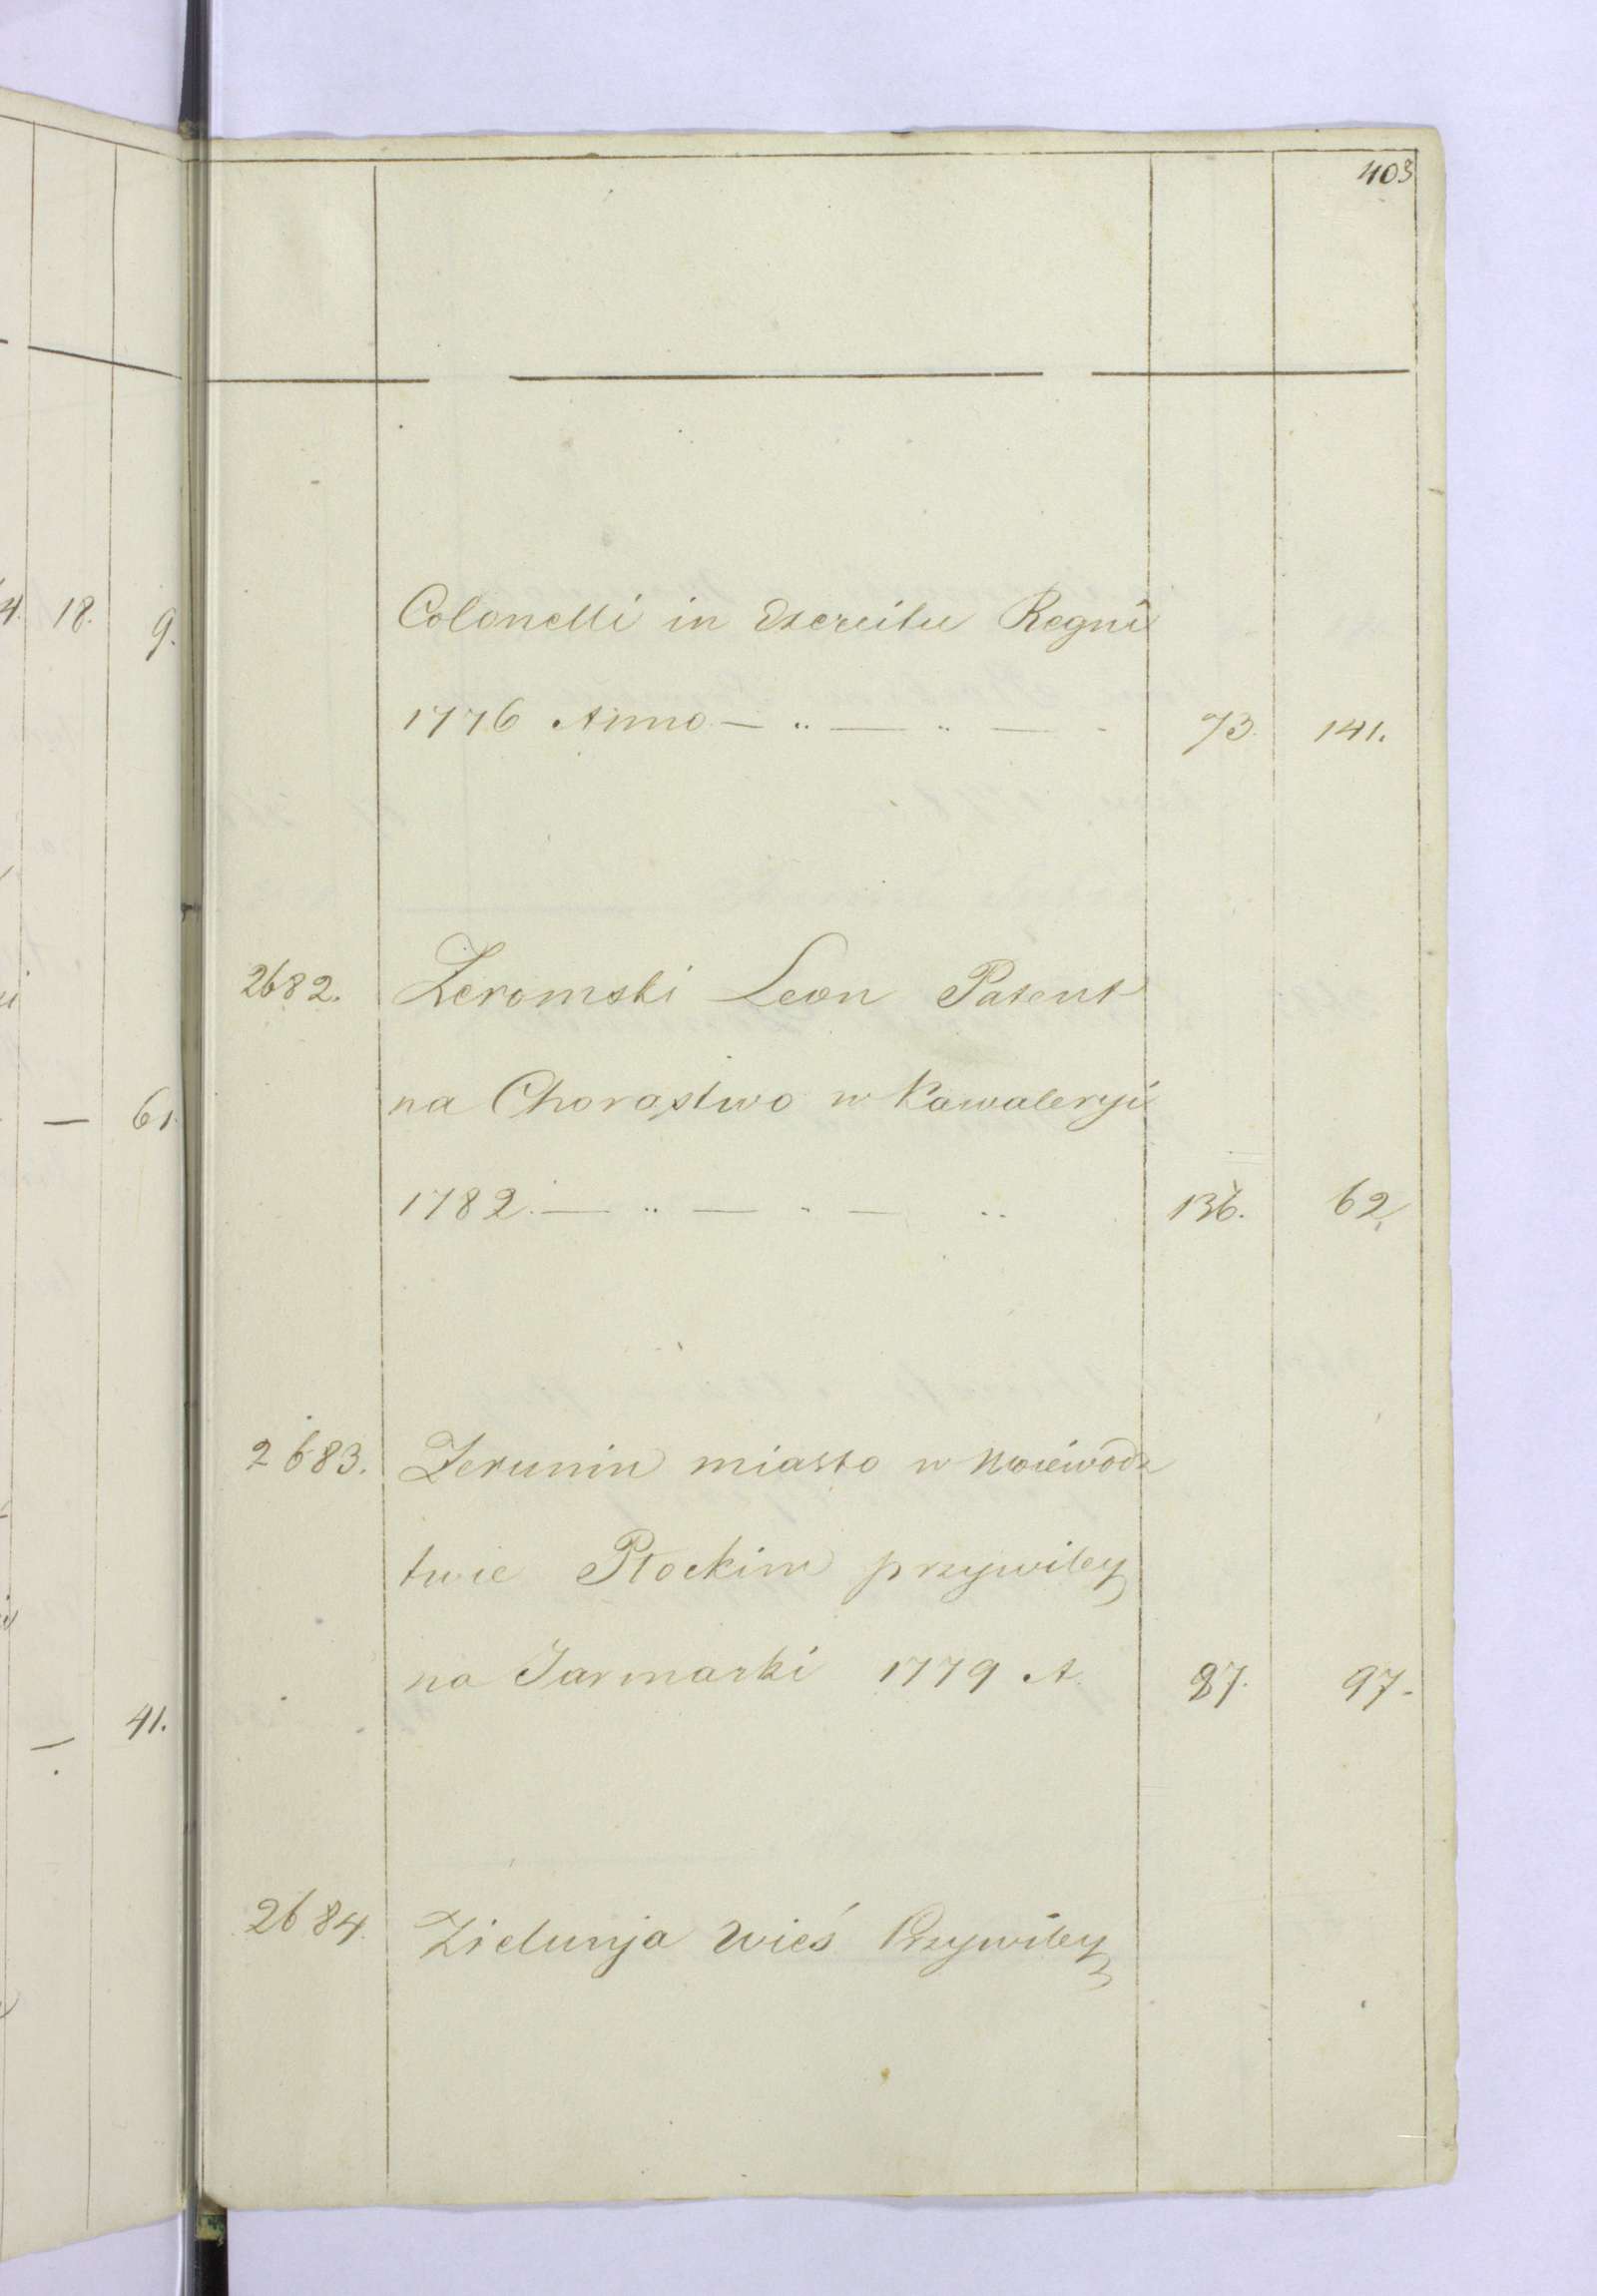 403
4. 18. 9.
Colonelli in Exercitu Regni
1776 Anno — .. — .. — - 73. 141.
2682. Żeromski Leon Patent
na Chorąstwo w Kawaleryi
1782. — .. — .. — .. 136. 62.
— 61.
2683. Żerunin miasto w Woiewodz
twie Płockim przywiley
na Jarmarki 1779 A. 87. 97.
— 41.
2684. Wieś Przywiley